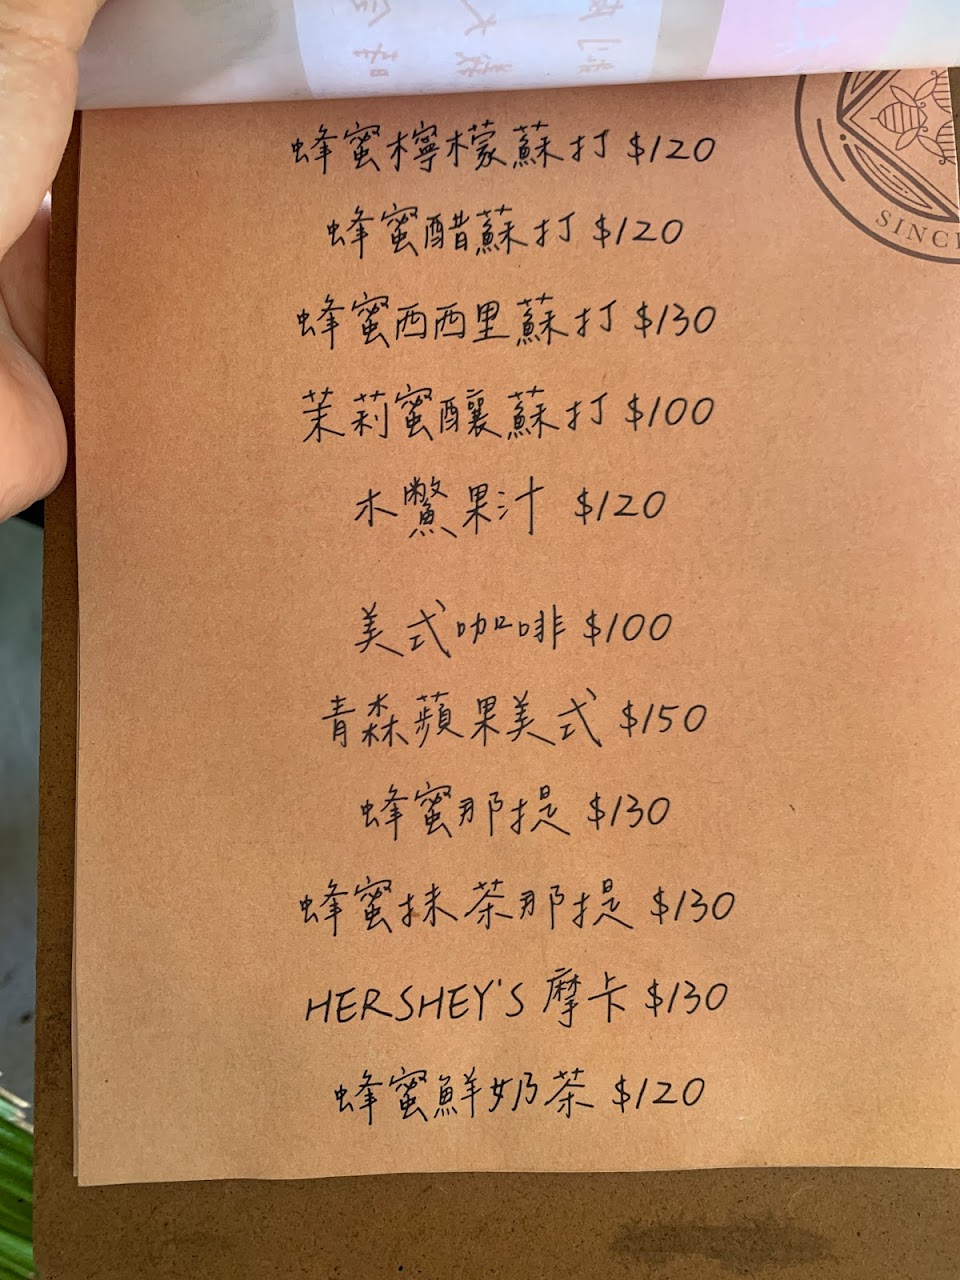 蜂蜜檸檬蘇打 $120
蜂蜜醋蘇打 $120
蜂蜜西西里蘇打 $130
茉莉蜜釀蘇打 $100
木鱉果汁 $120
美式咖啡 $100
青森蘋果美式 $150
蜂蜜那提 $130
蜂蜜抹茶那提 $130
HERSHEY'S 摩卡 $130
蜂蜜鮮奶茶 $120